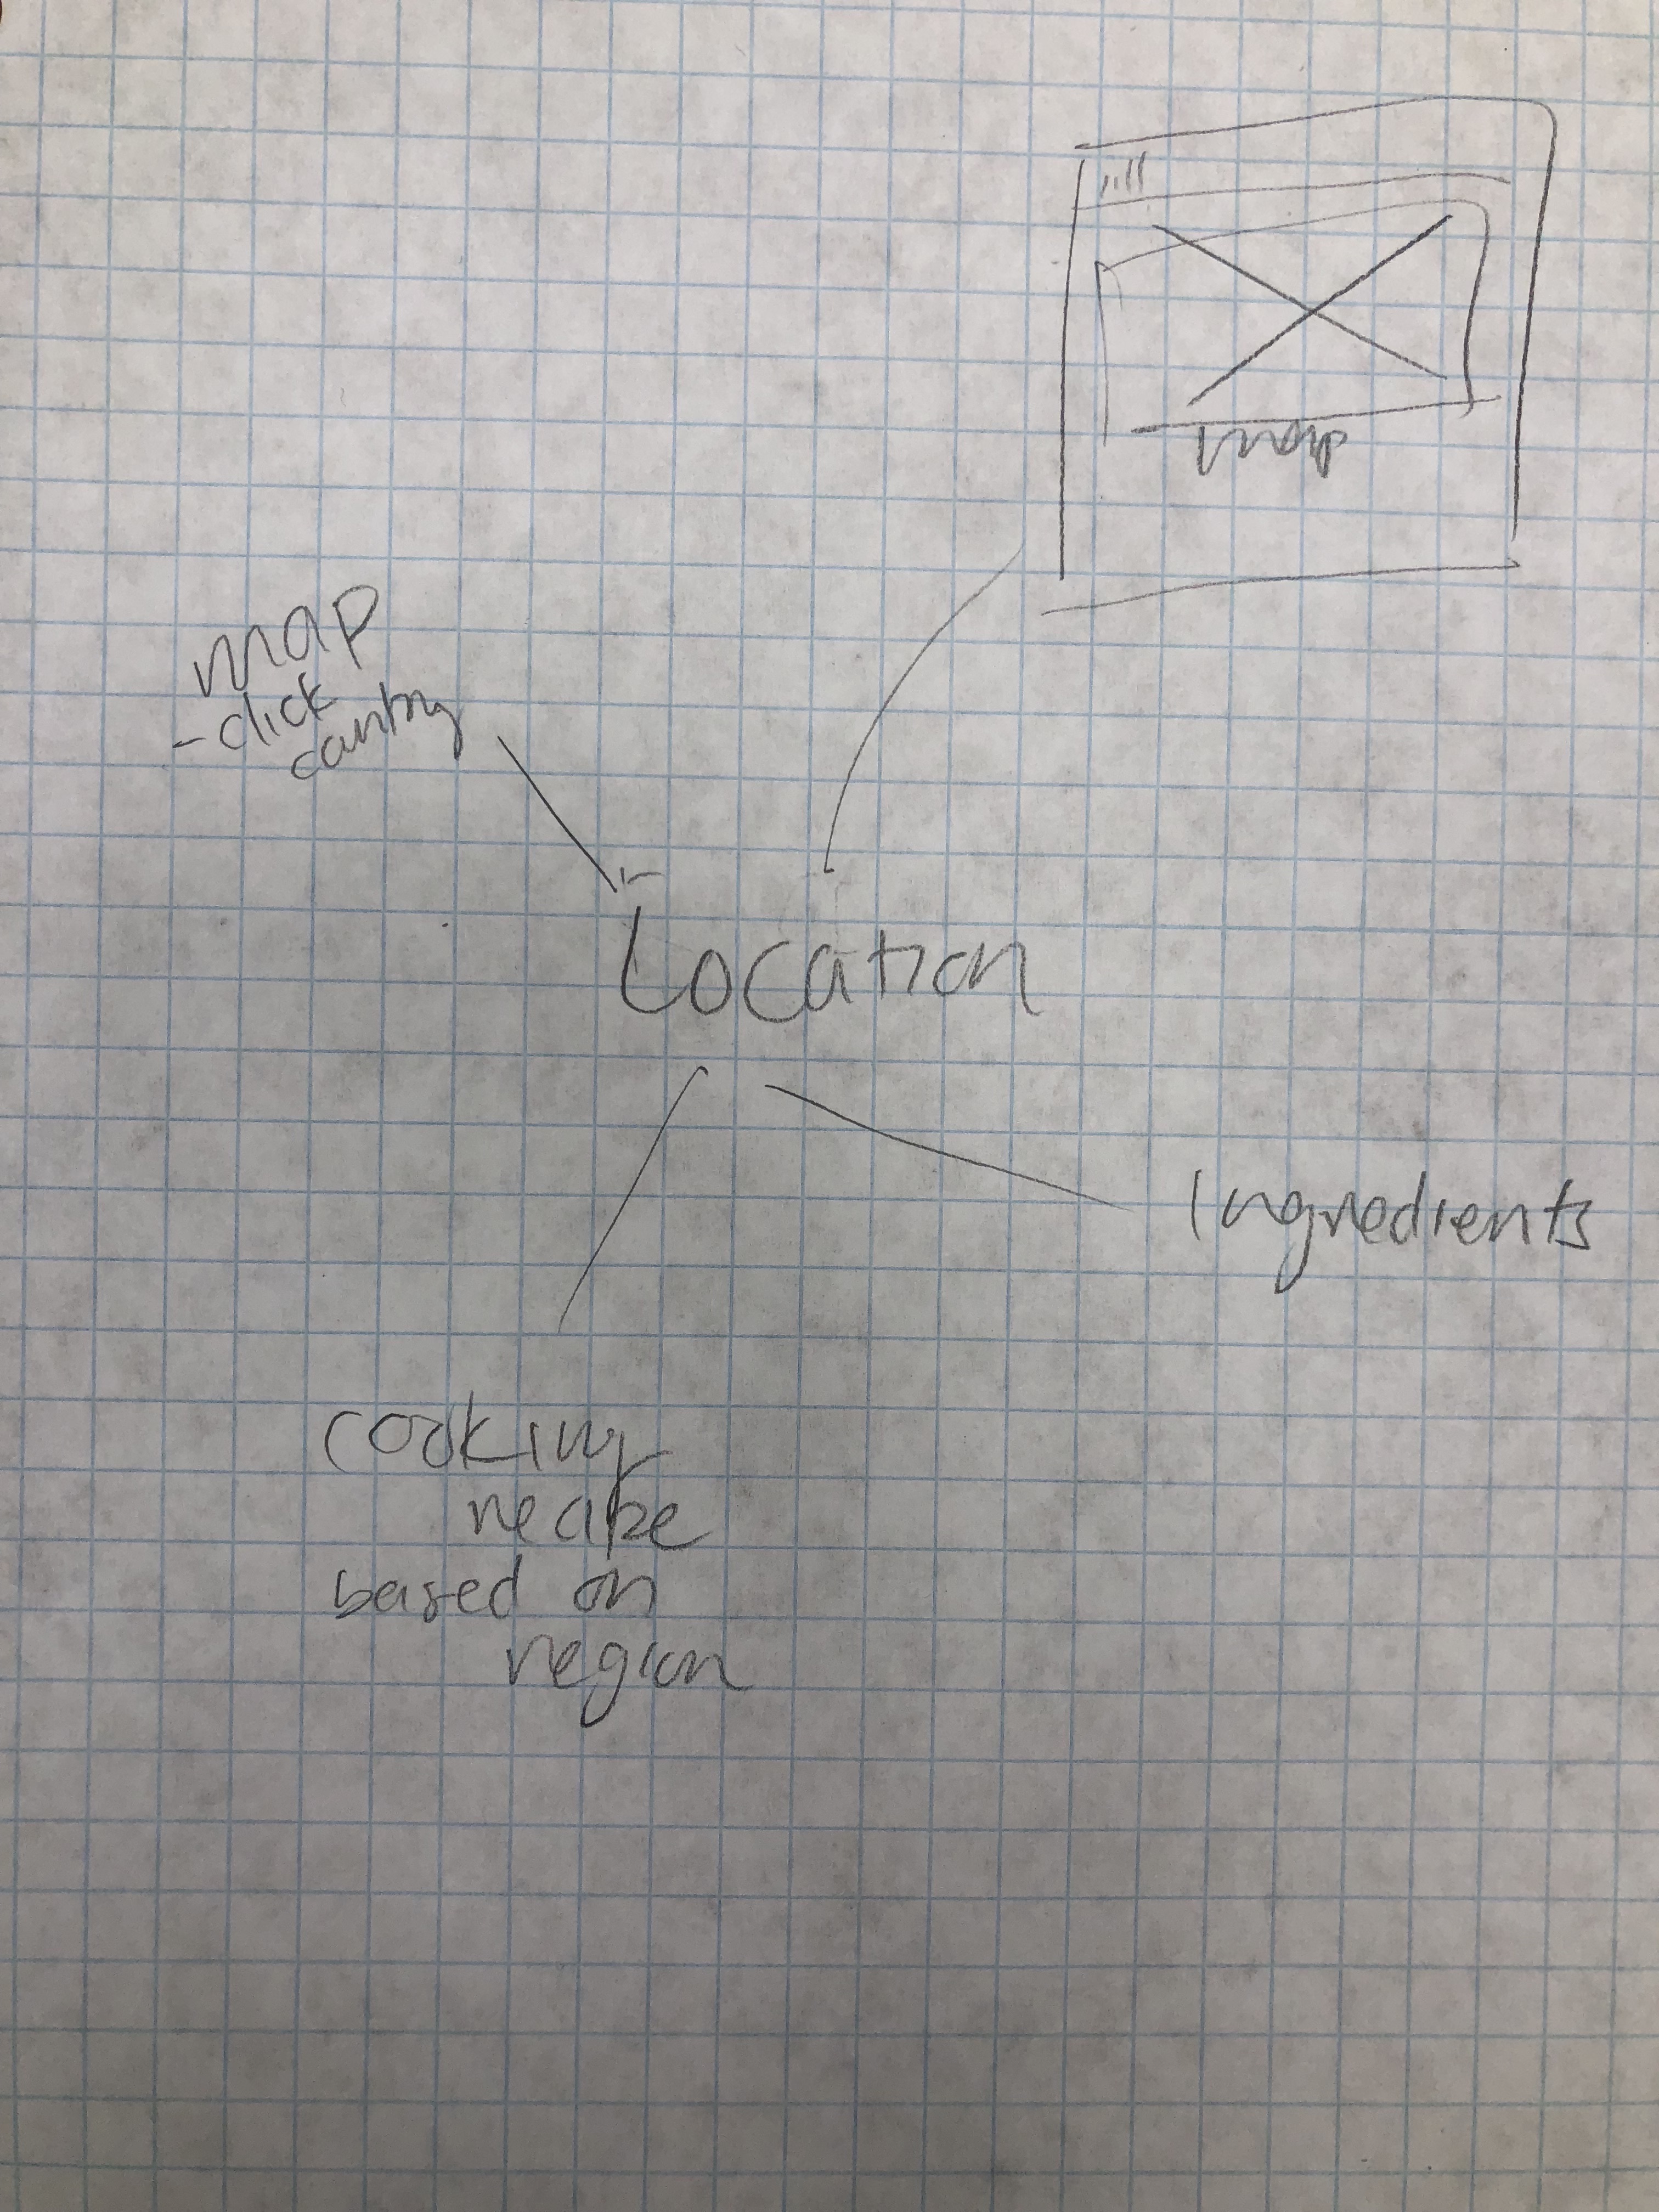 map
map
- click
country
Location
Ingredients
cooking
recipe
based on
region